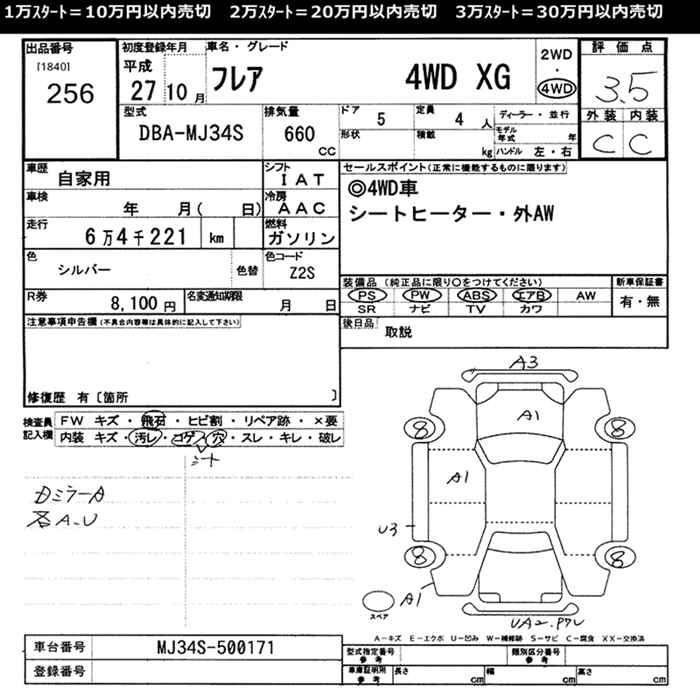 1万ｽﾀｰﾄ＝10万円以内売切　2万ｽﾀｰﾄ＝20万円以内売切　3万ｽﾀｰﾄ＝30万円以内売切
出品番号
[1840]
256
初度登録年月
平成
27 10 月
車名・グレード
フレア 4WD XG
2WD
・
4WD
評価点
3.5
外装 内装
C C
型式
DBA-MJ34S
排気量
660
CC
ドア 5
定員 4 人
形状
積載 kg
ディーラー・並行
モデル年式 年
ハンドル 左・右
車歴
自家用
シフト
IAT
車検
年 月( 日)
冷房
AAC
走行
6万4千221 km
燃料
ガソリン
色
シルバー
色替
色コード
Z2S
R券
8,100 円
名変通知期限
月 日
セールスポイント(正常に機能するものに限ります)
◎4WD車
シートヒーター・外AW
装備品 (純正品に限り○をつけてください)
PS PW ABS エアB AW
SR ナビ TV カワ
新車保証書
有・無
後日品
取説
注意事項申告欄(不具合内容等は具体的に記入して下さい)
修復歴 有〔箇所 〕
検査員
記入欄
FW キズ・飛石・ヒビ割・リペア跡・×要
内装 キズ・汚レ・コゲ・穴・スレ・キレ・破レ
DミラーA
各A.U
A3
A1
8
8
A1
U3
8
8
A1
スペア
UA2.
A－キズ E－エクボ U－凹み W－補修跡 S－サビ C－腐食 XX－交換済
車台番号
MJ34S-500171
登録番号
型式指定番号
参考
類別区分番号
参考
車庫証明用
参考
長さ cm
幅 cm
高さ cm